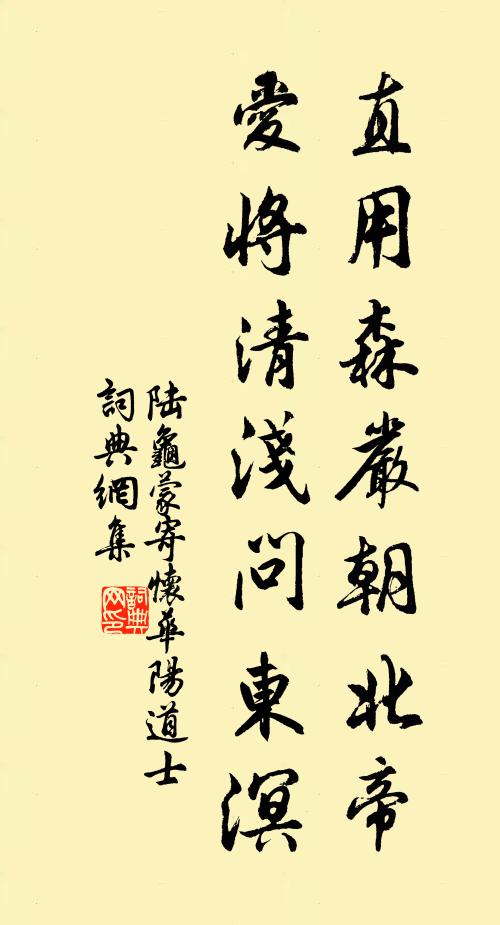 直用森嚴朝北帝
愛將清淺問東溟
陸龜蒙寄懷華陽道士
詞典網集
詞典网印